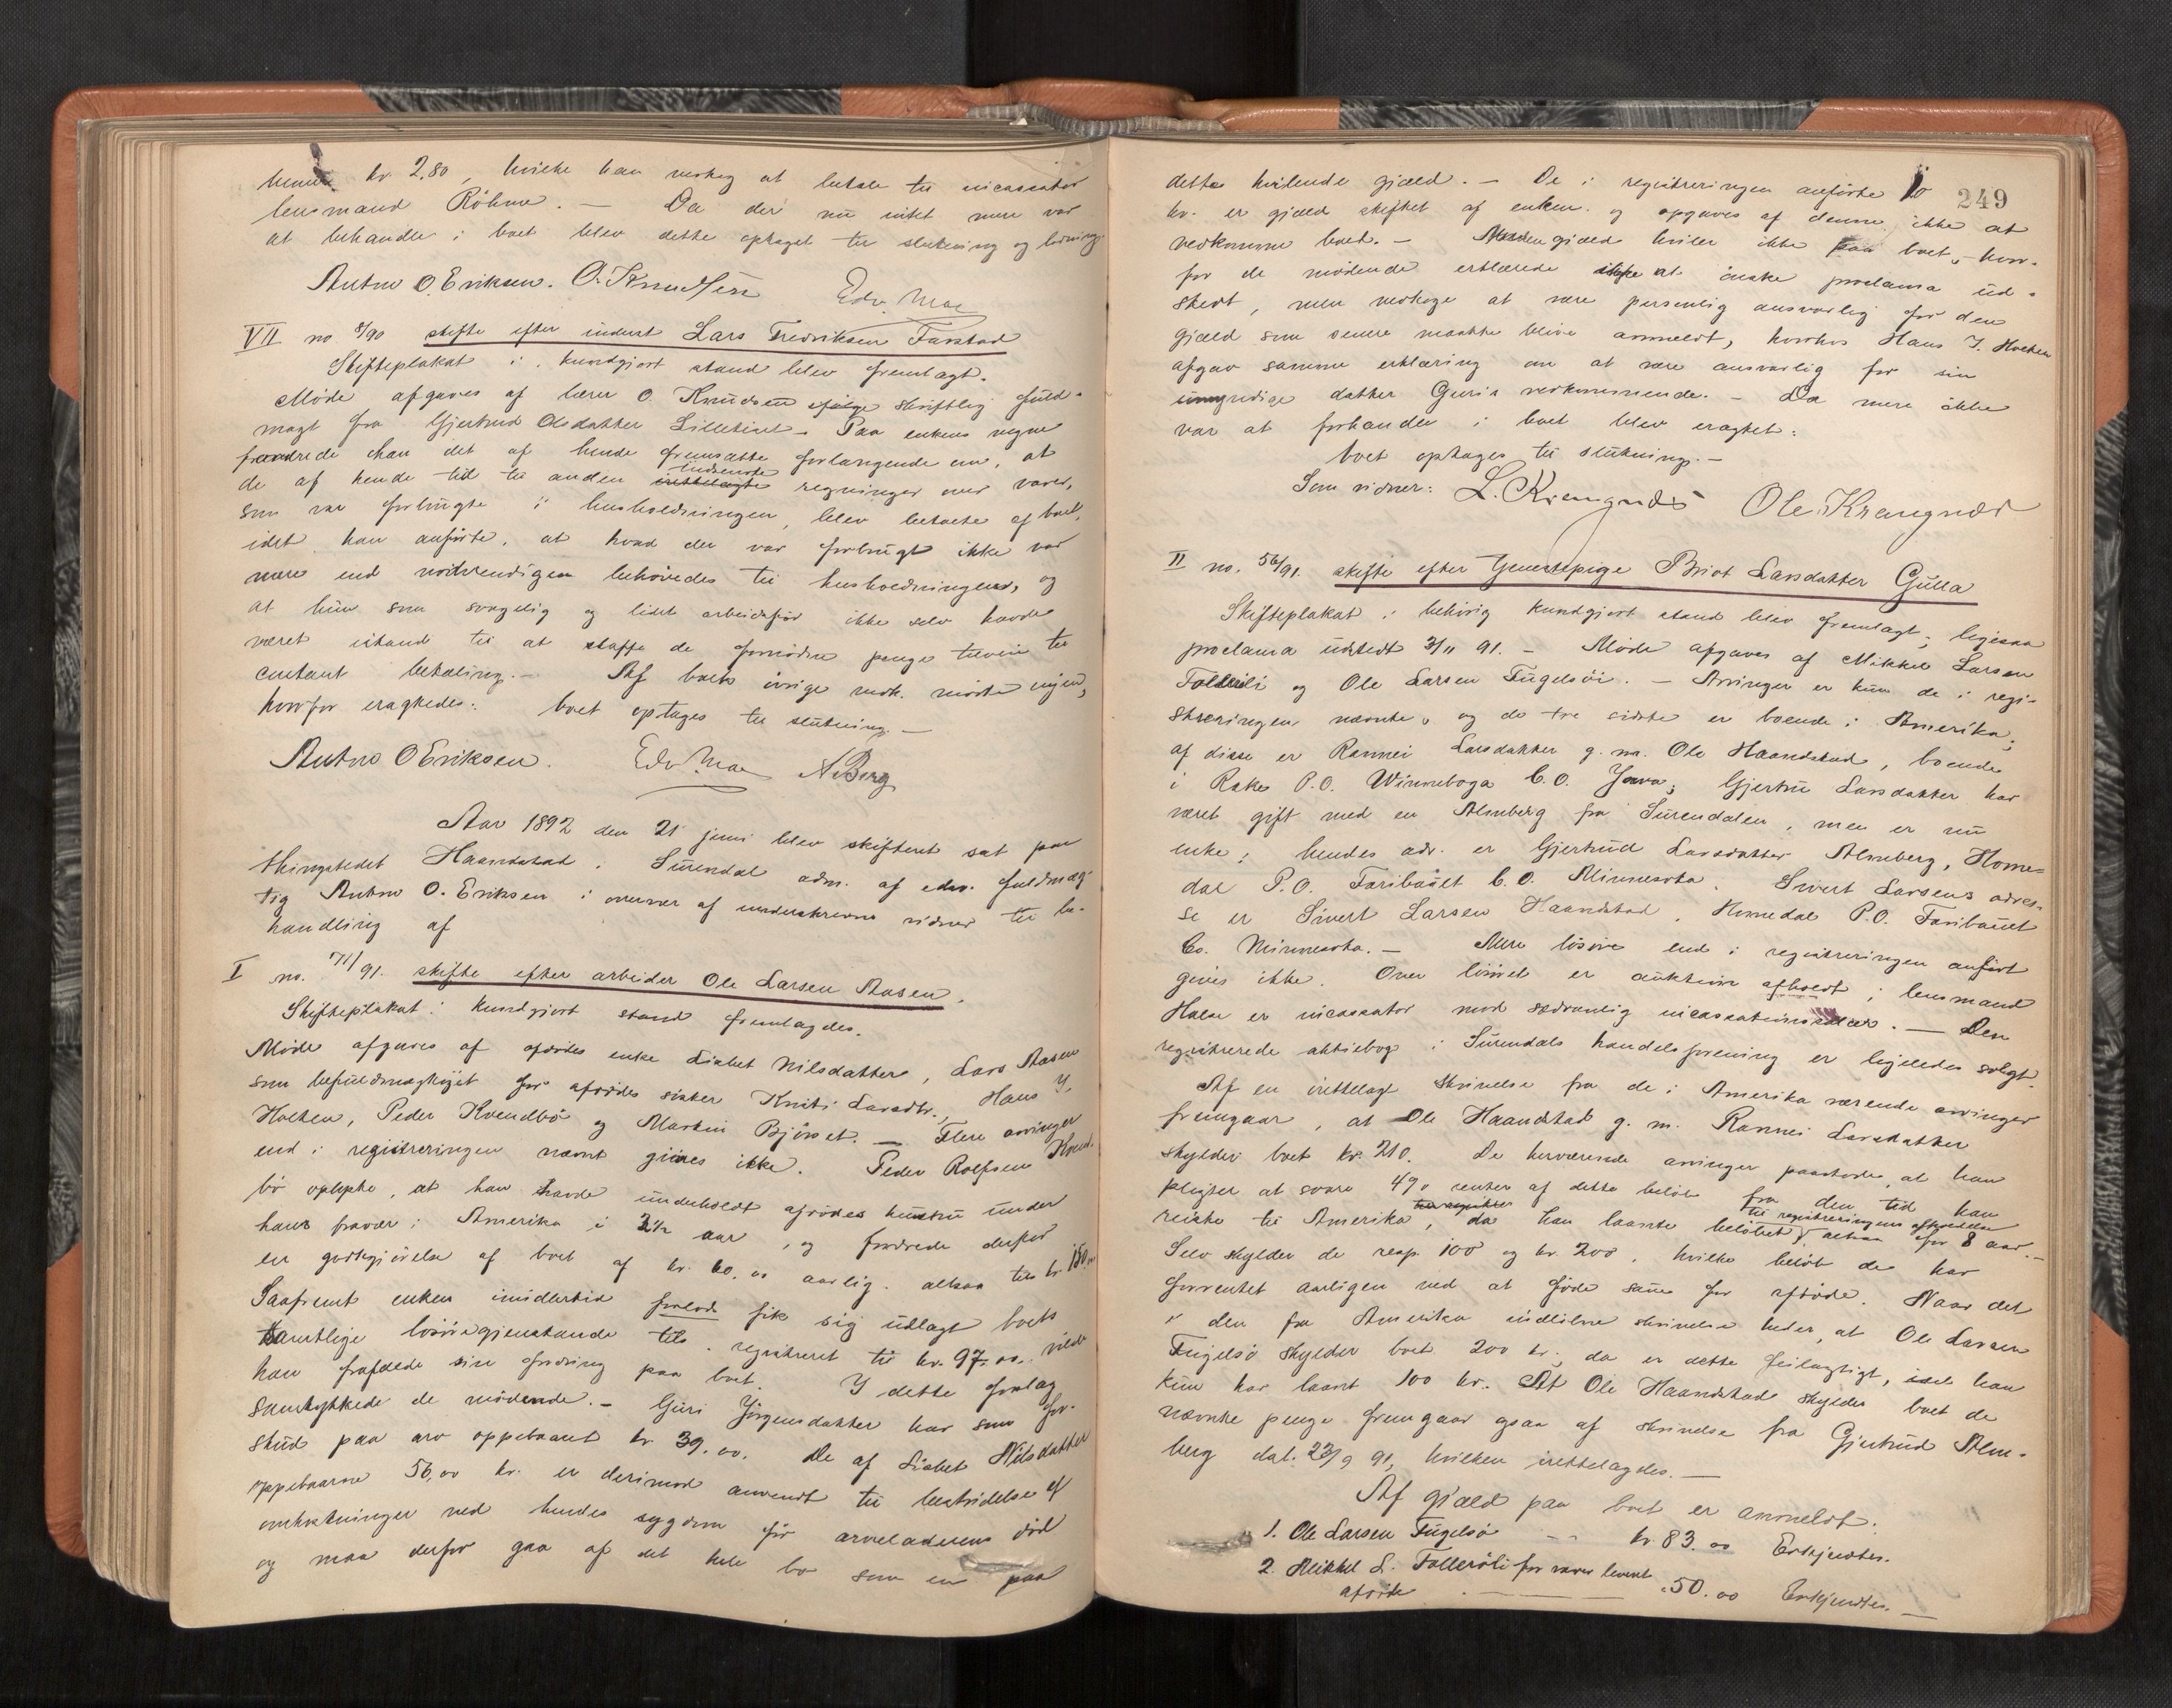 kr. 2,80, hvilke han vedtog at betale til incassator
lensmand Röhme. — Da der nu intet mere var
at behandle i boet blev dette optaget til slutning og lodning.
Anton O. Eriksen. O. Knudsen Edv. Moe
VII no. 8/90 skifte efter inderst Lars Fredriksen Farstad
Skifteplakat i kundgjort stand blev fremlagt.
Møde afgaves af lærer O. Knudsen ifølge skriftlig fuld-
magt fra Gjertrud Olsdatter Lilletiset. Paa enkens vegne
fremdrede han det af hende fremsatte forlangende om, at
de af hende tid til anden indsendte regninger over varer,
som var forbrugte i husholdningen, blev betalte af boet,
idet han anførte, at hvad der var forbrugt ikke var
mere end nødvendigen behövedes til husholdningen, og
at hun som svagelig og lidet arbeidsfør ikke selv havde
været istand til at skaffe de fornødne penge tilveie til
contant betaling. — Af boets øvrige vedk. mødte ingen,
hvorfor eragtedes: boet optages til slutning. —
Anton O Eriksen. Edv. Moe A Berg
Aar 1892 den 21 juni blev skifteret sat paa
thingstedet Haandstad i Surendal adm. af edsv. fuldmæg-
tig Anton O. Eriksen i overvær af underskrevne vidner til be-
handling af
I no. 71/91. skifte efter arbeider Ole Larsen Aasen.
Skifteplakat i kundgjort stand fremlagdes.
Møde afgaves af afdødes enke Lisbet Nilsdatter, Lars Aasen
som befuldmægtiget for afdødes sister Kniti Larsdtr., Hans J.
Holten, Peder Kvendbø og Martin Bjørset. — Flere arvinger
end i registreringen nævnt gives ikke. Peder Rolfsen Kvend-
bø oplyste, at han havde underholdt afdødes hustru under
hans fravær i Amerika i 2½ aar, og fordrede derfor
en godtgjörelse af boet af kr. 60.00 aarlig. altsaa til kr. 150.00
Saafremt enken imidlertid fik sig udlagt boets
samtlige løsöregjenstande registreret til kr. 97.00 vilde
han frafalde sin fordring paa boet. I dette forslag
samtykkede de mödende. — Guri Jörgensdatter har som for-
skud paa arv oppebaaret kr. 39.00. De af Lisbet Nilsdatter
oppebaarne 56,00 kr. er derimod anvendt til bestridelse af
omkostninger ved hendes sygdom før arveladerens død
og maa derfor gaa af det hele bo som en paa
249
dette hvilende gjæld. — De i registreringen anførte
kr. er gjæld stiftet af enken og opgaves af denne ikke at
vedkomme boet. — Anden gjæld hviler ikke paa boet, hvor-
for de mødende erklærede ikke at önske proclama ud-
stedt, men vedtoge at være personlig ansvarlig for den
gjæld som senere maatte blive anmeldt, hvorhos Hans J. Holten
afgav samme erklæring om at være ansvarlig for sin
umyndige datter Guris vedkommende. — Da mere ikke
var at forhandle i boet blev eragtet:
boet optages til slutning. —
Som vidner: L. Krangnæs Ole Krangnæs
II no. 56/91. skifte efter tjenestepige Briot Larsdatter Gulla
Skifteplakat i behörig kundgjort stand blev fremlagt; ligesaa
proclama udstedt 3/11 91. — Møde afgaves af Mikkel Larsen
Tolleröli og Ole Larsen Fugelsöi. — Arvinger er kun de i regi-
streringen nævnte, og de tre sidste er boende i Amerika;
af disse er Rannei Larsdatter g. m. Ole Haandstad, boende
i Rake P.O. Winneboga C.O. Jowa; Gjertru Larsdatter har
været gift med en Almberg fra Surendalen, men er nu
enke; hendes adr. er Gjertrud Larsdatter Almberg, Home-
dal P.O. Faribault C.O. Minnesota. Sivert Larsens adres-
se er Sivert Larsen Haandstad, Homedal P.O. Faribault
Co. Minnesota. — Mere lösöre end i registreringen anført
gives ikke. Over lösöret er auktion afholdt; lensmand
Halse er incassator mod sædvanlig . — Den
registrerede aktiebog i Surendals handelsforening er ligeledes solgt.
Af en irettelagt skrivelse fra de i Amerika værende arvinger
fremgaar, at Ole Haandstad g. m. Rannei Larsdatter
skylder boet kr. 210. De herværende arvinger paastode, at han
pligter at svare 4% renter af dette beløb fra den tid han
til registreringens afholdelse
reiste til Amerika, da han laante beløbet altsaa for 8 aar. —
Selv skylder de resp. 100 og kr. 200, hvilke beløb de har
forrentet aarligen ved at föde sau for afdøde. Naar det
i den fra Amerika indløbne skrivelse heder, at Ole Larsen
Fugelsö skylder boet 200 kr., da er dette feilagtigt, idet han
kun har laant 100 kr. At Ole Haandstad skylder boet de
nævnte penge fremgaar ogsaa af skrivelse fra Gjertrud Alm-
berg dat. 23/9 91, hvilken irettelagdes. —
Af gjæld paa boet er anmeldt:
1. Ole Larsen Fugelsö kr. 83.00 Erkjendtes.
2. Mikkel L. Tolleröli for varer leveret
afdöde 50.00 Erkjendtes. —